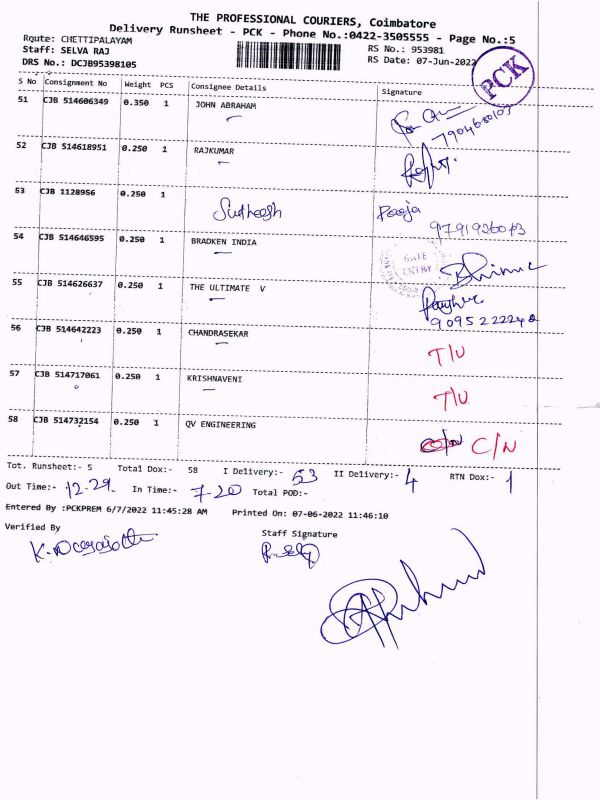 THE PROFESSIONAL COURIERS, Coimbatore
Delivery Runsheet - PCK - Phone No.:0422-3505555 - Page No.:5
Route: CHETTIPALAYAM
RS No.: 953981
Staff: SELVA RAJ
RS Date: 07-Jun-2022
DRS No.: DCJB95398105
PCK
S No Consignment No Weight PCS Consignee Details Signature
51 CJB 514606349 0.350 1 JOHN ABRAHAM
7904680103
52 CJB 514618951 0.250 1 RAJKUMAR
53 CJB 1128956 0.250 1 Sudheesh Pooja
54 CJB 514646595 0.250 1 BRADKEN INDIA
GATE ENTRY
55 CJB 514626637 0.250 1 THE ULTIMATE V
9095222240
56 CJB 514642223 0.250 1 CHANDRASEKAR T/U
57 CJB 514717061 0.250 1 KRISHNAVENI T/U
58 CJB 514732154 0.250 1 QV ENGINEERING C/N
Tot. Runsheet:- 5 Total Dox:- 58 I Delivery:- 53 II Delivery:- 4 RTN Dox:- 1
Out Time:- 12-29 In Time:- 7-20 Total POD:-
Entered By :PCKPREM 6/7/2022 11:45:28 AM Printed On: 07-06-2022 11:46:10
Verified By
Staff Signature